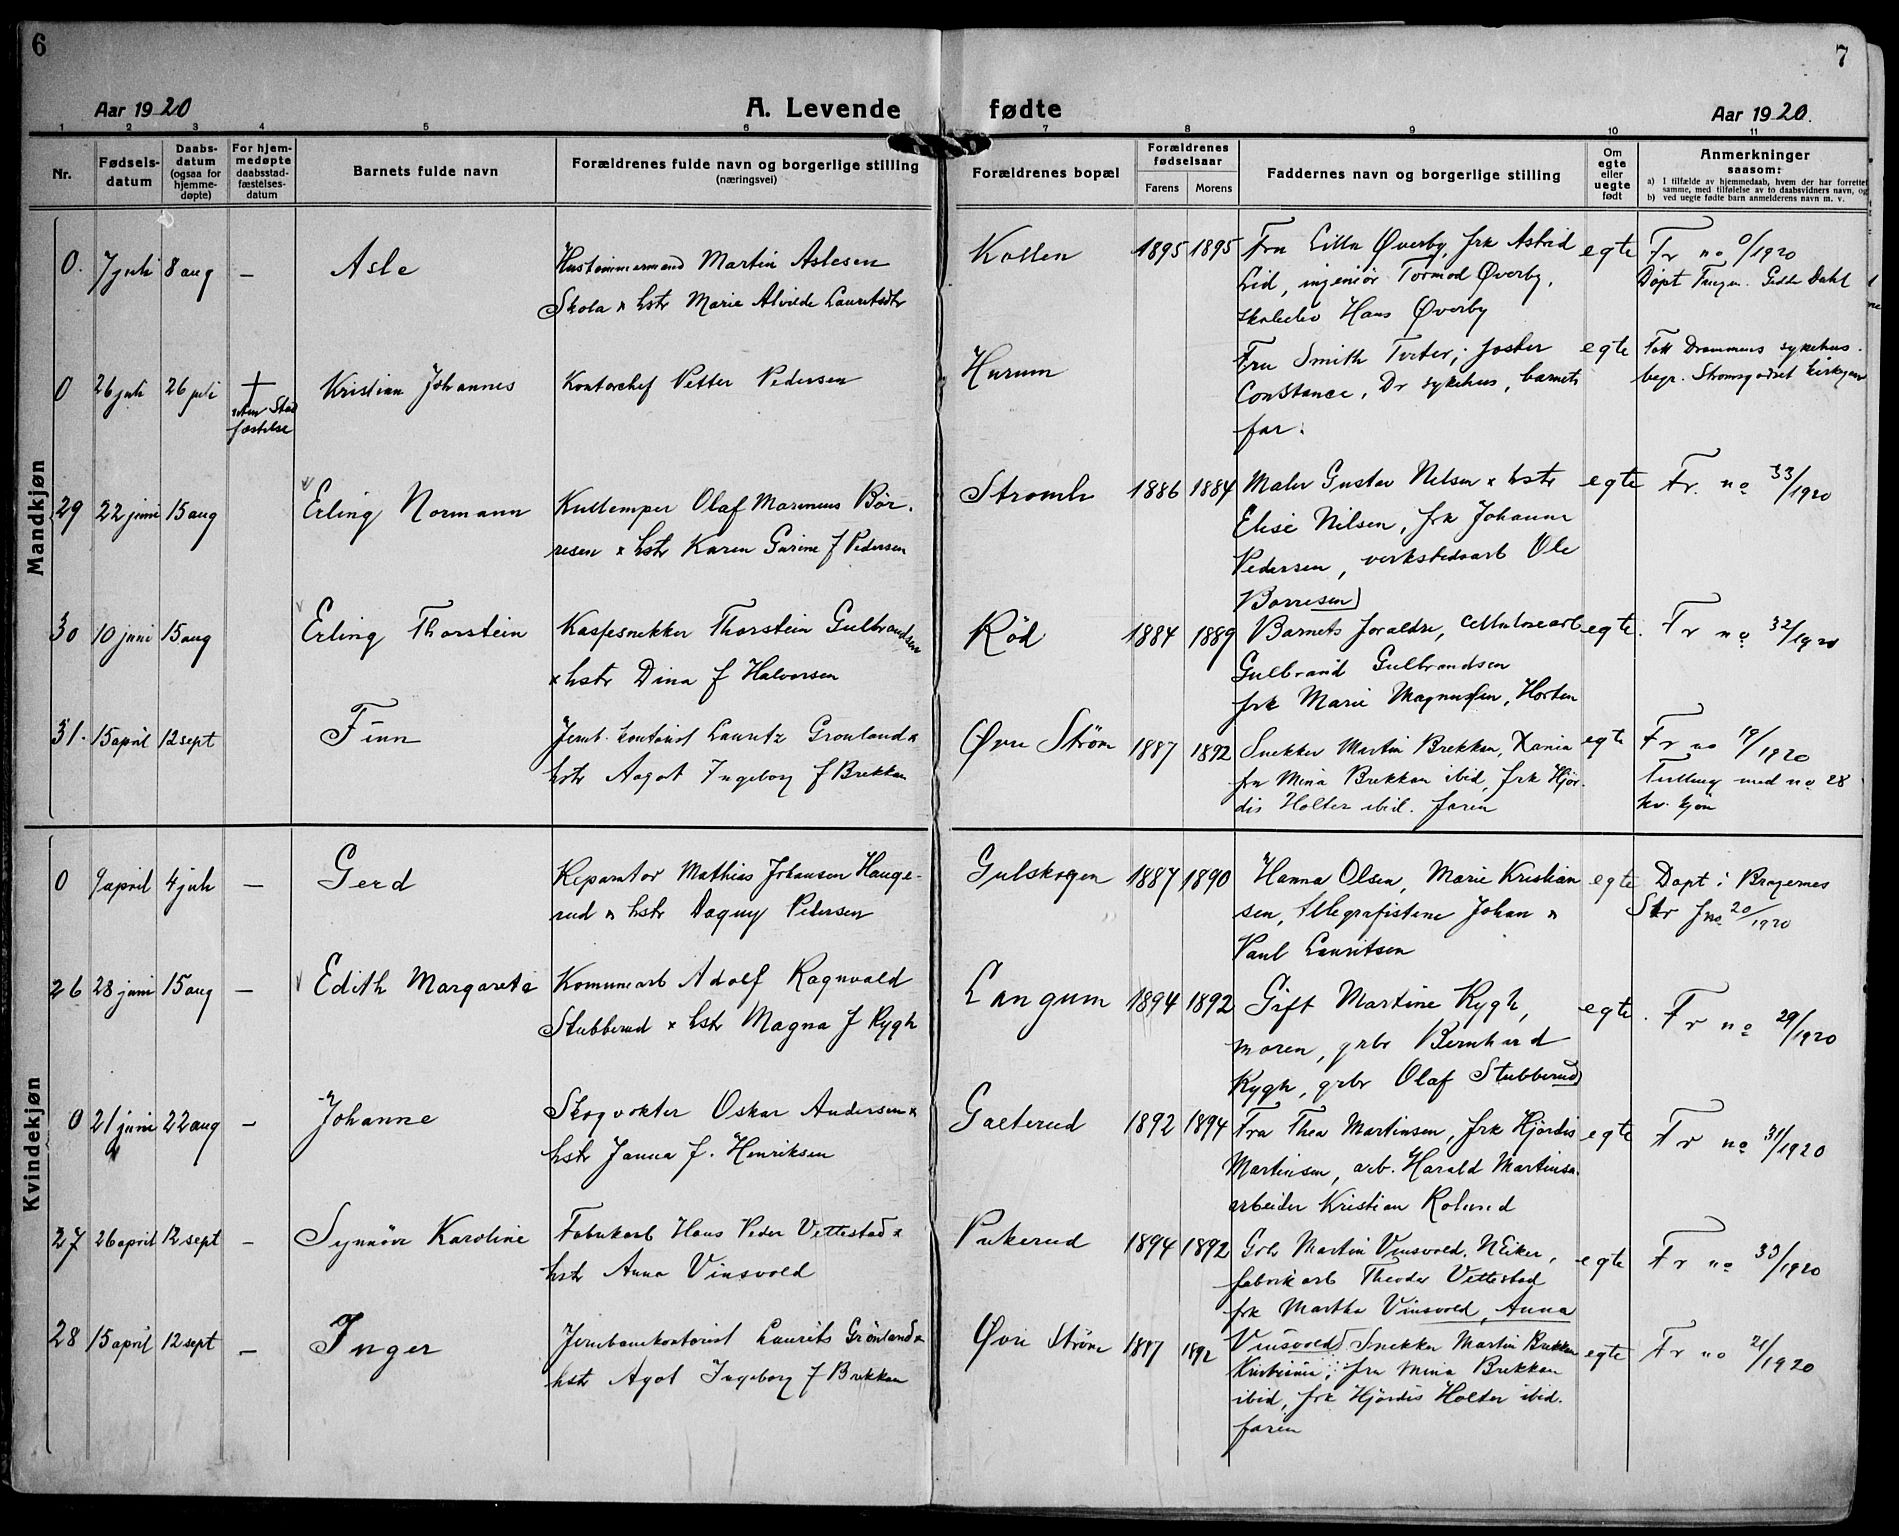 6
7
Aar 1920
A. Levende fødte
Aar 1920.
1 2 3 4 5 6 7 8 9 10 11
Nr.
Fødsels-
datum
Daabs-
datum
(ogsaa for
hjemme-
døpte)
For hjem-
medøpte
daabsstad-
fæstelses-
datum
Barnets fulde navn
Forældrenes fulde navn og borgerlige stilling
(næringsvei)
Forældrenes bopæl
Forældrenes
fødselsaar
Farens
Morens
Faddernes navn og borgerlige stilling
Om
egte
eller
uegte
født
Anmerkninger
saasom:
a) I tilfælde av hjemmedaab, hvem der har forrettet
samme, med tilføielse av to daabsvidners navn, og
b) ved uegte fødte barn anmelderens navn m. v.
Mandkjøn
0. 7 juli 8 aug – Asle
Hustømmermand Martin Aslesen
Skola x hstr Marie Alvilde Lauritsdtr
Kollen 1895 1895
Fru Lilla Øverby, frk Astrid
Lid, ingeniør Tormod Øverby,
skoleelev Hans Øverby
egte
Fr no 0/1920
Døpt Tingen. Gedde Dahl
0 26 juli 26 juli †
uten Stad
fæstelse
Kristian Johannes
Kontorchef Petter Pedersen
Hurum
Fru Smith Tveter, søster
Constance, Dr sykehus, barnets
far.
egte
Født Drammens sykehus.
begr. Strømsgodset kirkegaard
29 22 juni 15 aug
Erling Normann
Kullemper Olaf Marinius Bør-
resen x hstr Karen Garine f Pedersen
Strømh 1886 1884
Maler Gustav Nilsen x hstr
Elise Nilsen, frk Johanne
Pedersen, verkstedsarb Ole
Borresen
egte
Fr. no 33/1920
30 10 juni 15 aug
Erling Thorstein
Kassesnekker Thorstein Gulbrandsen
x hstr Dina f Halvorsen
Rød 1884 1889
Barnets foraldre, cellulosearb
Gulbrand Gulbrandsen
frk Marie Magnussen, Horten
egte.
Fr no 32/1920
31. 15 april 12 sept
Finn
Jernb. kontorist Lauritz Gronland x
hstr Aagot Ingeborg f Brekken
Øvre Strøm 1887 1892
Snekker Martin Brekken, Xania
fru Mina Brekken ibid, frk Hjør-
dis Holter ibid. faren
egte
Fr no 19/1920
Tvilling med no 28
kv. kjøn
Kvindekjøn
0 9 april 4 juli – Gerd
Reparatør Mathias Johansen Hauge-
rud x hstr Dagny Pedersen
Gulskogen 1887 1890
Hanna Olsen, Marie Kristian
sen, telegrafistene Johan x
Paul Lauritsen
egte
Døpt i Bragernes
Str Jno 20/1920
26 28 juni 15 aug – Edith Margareta
Komunearb Adolf Ragnvald
Stubberud x hstr Magna f Rygh
Langum 1894 1892
Gift Martine Rygh,
moren, grbr Bernhard
Rygh, grbr Olaf Stubberud
egte.
Fr no 29/1920
0 21 juni 22 aug – Johanne
Skogvokter Oskar Andersen x
hstr Janna f. Henriksen
Galterud 1892 1894
Fra Thea Martinsen, frk Hjørdis
Martinsen, arb. Harald Martinsen.
arbeider Kristian Rolund
egte
Fr no 31/1920
27 26 april 12 sept – Synnøve Karoline
Fabrikarb Hans Peder Vettestad x
hstr Anna Vinsvold
Pukerud 1894 1892
Grbr Martin Vinsvold, NEiker,
fabrikarb Theodor Vettestad
frk Martha Vinsvold, Anna
Vinsvold
egte
Fr no 33/1920
28 15 april 12 sept – Inger
Jernbanekontorist Laurits Grønland x
hstr Agot Ingeborg f Brekken
Øvre Strøm 1887 1892
Snekker Martin Brekken
Kristiania, fru Mina Brekken
ibid, frk Hjørdis Holter ibid.
faren
egte
Fr no 21/1920